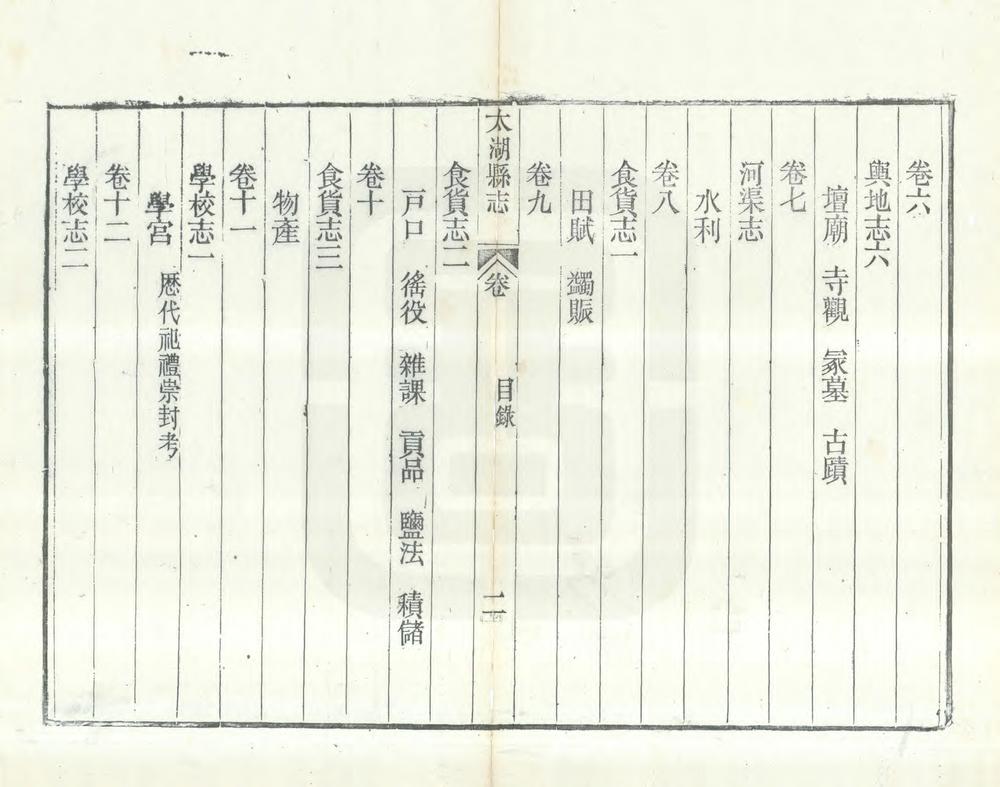 卷六
輿地志六
壇廟 寺觀 冢墓 古蹟
卷七
河渠志
水利
卷八
食貨志一
田賦 蠲賑
卷九
太湖縣志 卷 目錄 二
食貨志二
戸口 徭役 雜課 貢品 鹽法 積儲
卷十
食貨志三
物產
卷十一
學校志一
學宮 歴代祀禮崇封考
卷十二
學校志二